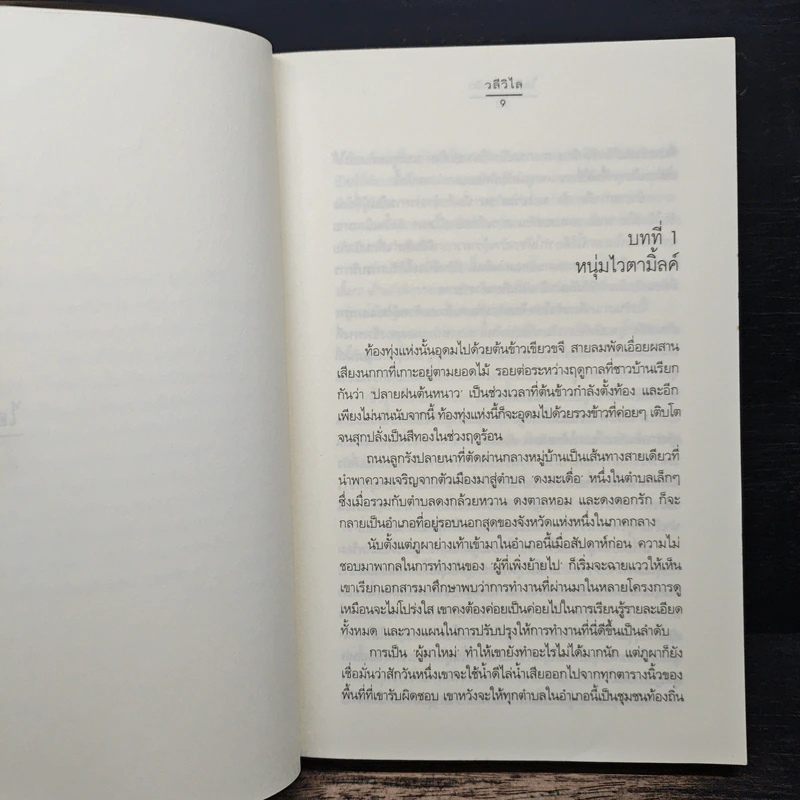 วลีวิไล
9
บทที่ 1
หนุ่มไวตามิ้ลค์
ท้องทุ่งแห่งนั้นอุดมไปด้วยต้นข้าวเขียวขจี สายลมพัดเอื่อยผสาน
เสียงนกกาที่เกาะอยู่ตามยอดไม้ รอยต่อระหว่างฤดูกาลที่ชาวบ้านเรียก
กันว่า 'ปลายฝนต้นหนาว' เป็นช่วงเวลาที่ต้นข้าวกำลังตั้งท้อง และอีก
เพียงไม่นานนับจากนี้ ท้องทุ่งแห่งนี้ก็จะอุดมไปด้วยรวงข้าวที่ค่อยๆ เติบโต
จนสุกปลั่งเป็นสีทองในช่วงฤดูร้อน
ถนนลูกรังปลายนาที่ตัดผ่านกลางหมู่บ้านเป็นเส้นทางสายเดียวที่
นำพาความเจริญจากตัวเมืองมาสู่ตำบล 'ดงมะเดื่อ' หนึ่งในตำบลเล็กๆ
ซึ่งเมื่อรวมกับตำบลดงกล้วยหวาน ดงตาลหอม และดงดอกรัก ก็จะ
กลายเป็นอำเภอที่อยู่รอบนอกสุดของจังหวัดแห่งหนึ่งในภาคกลาง
นับตั้งแต่ภูผาย่างเท้าเข้ามาในอำเภอนี้เมื่อสัปดาห์ก่อน ความไม่
ชอบมาพากลในการทำงานของ 'ผู้ที่เพิ่งย้ายไป' ก็เริ่มจะฉายแววให้เห็น
เขาเรียกเอกสารมาศึกษาพบว่าการทำงานที่ผ่านมาในหลายโครงการดู
เหมือนจะไม่โปร่งใส เขาคงต้องค่อยเป็นค่อยไปในการเรียนรู้รายละเอียด
ทั้งหมด และวางแผนในการปรับปรุงให้การทำงานที่นี่ดีขึ้นเป็นลำดับ
การเป็น 'ผู้มาใหม่' ทำให้เขายังทำอะไรไม่ได้มากนัก แต่ภูผาก็ยัง
เชื่อมั่นว่าสักวันหนึ่งเขาจะใช้น้ำดีไล่น้ำเสียออกไปจากทุกตารางนิ้วของ
พื้นที่ที่เขารับผิดชอบ เขาหวังจะให้ทุกตำบลในอำเภอนี้เป็นชุมชนท้องถิ่น